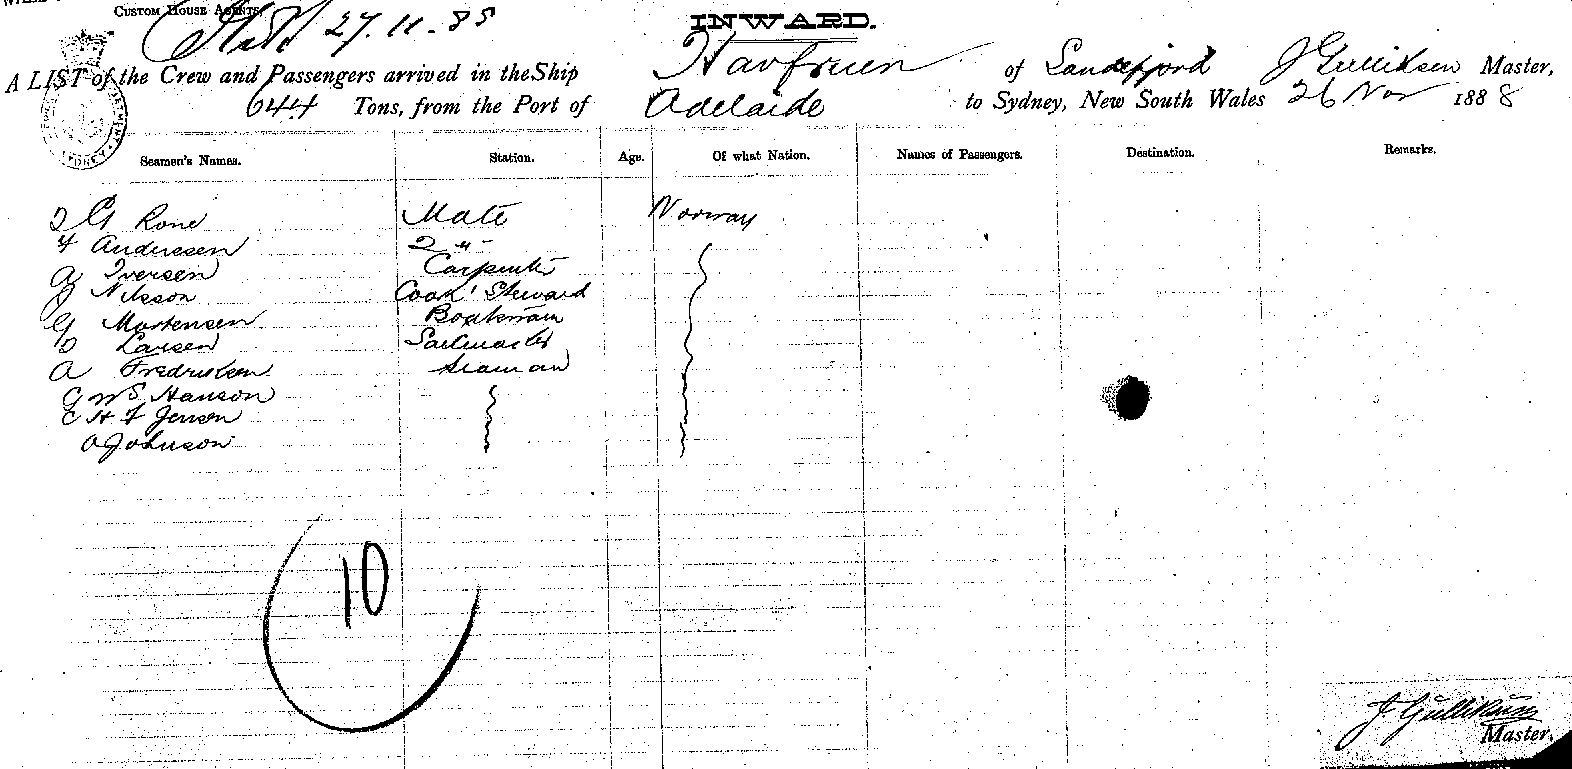 CUSTOM HOUSE AGENTS
27.11.88
INWARD.
A LIST of the Crew and Passengers arrived in the Ship Havfruen of Sandefjord J Gulliksen Master,
644 Tons, from the Port of Adelaide to Sydney, New South Wales 26 Nov 1888
Seamen's Names. Station. Age. Of what Nation. Names of Passengers. Destination. Remarks.
Mate Norway
Andersen 2 "
A Iversen Carpenter
J Nilsson Cook & Steward
G Mortensen Boatsman
O Larsen Sailmaker
A Fredriksen Seaman
G W S Hanson
C H F Jensen
O Johnson
10
J Gulliksen
Master.